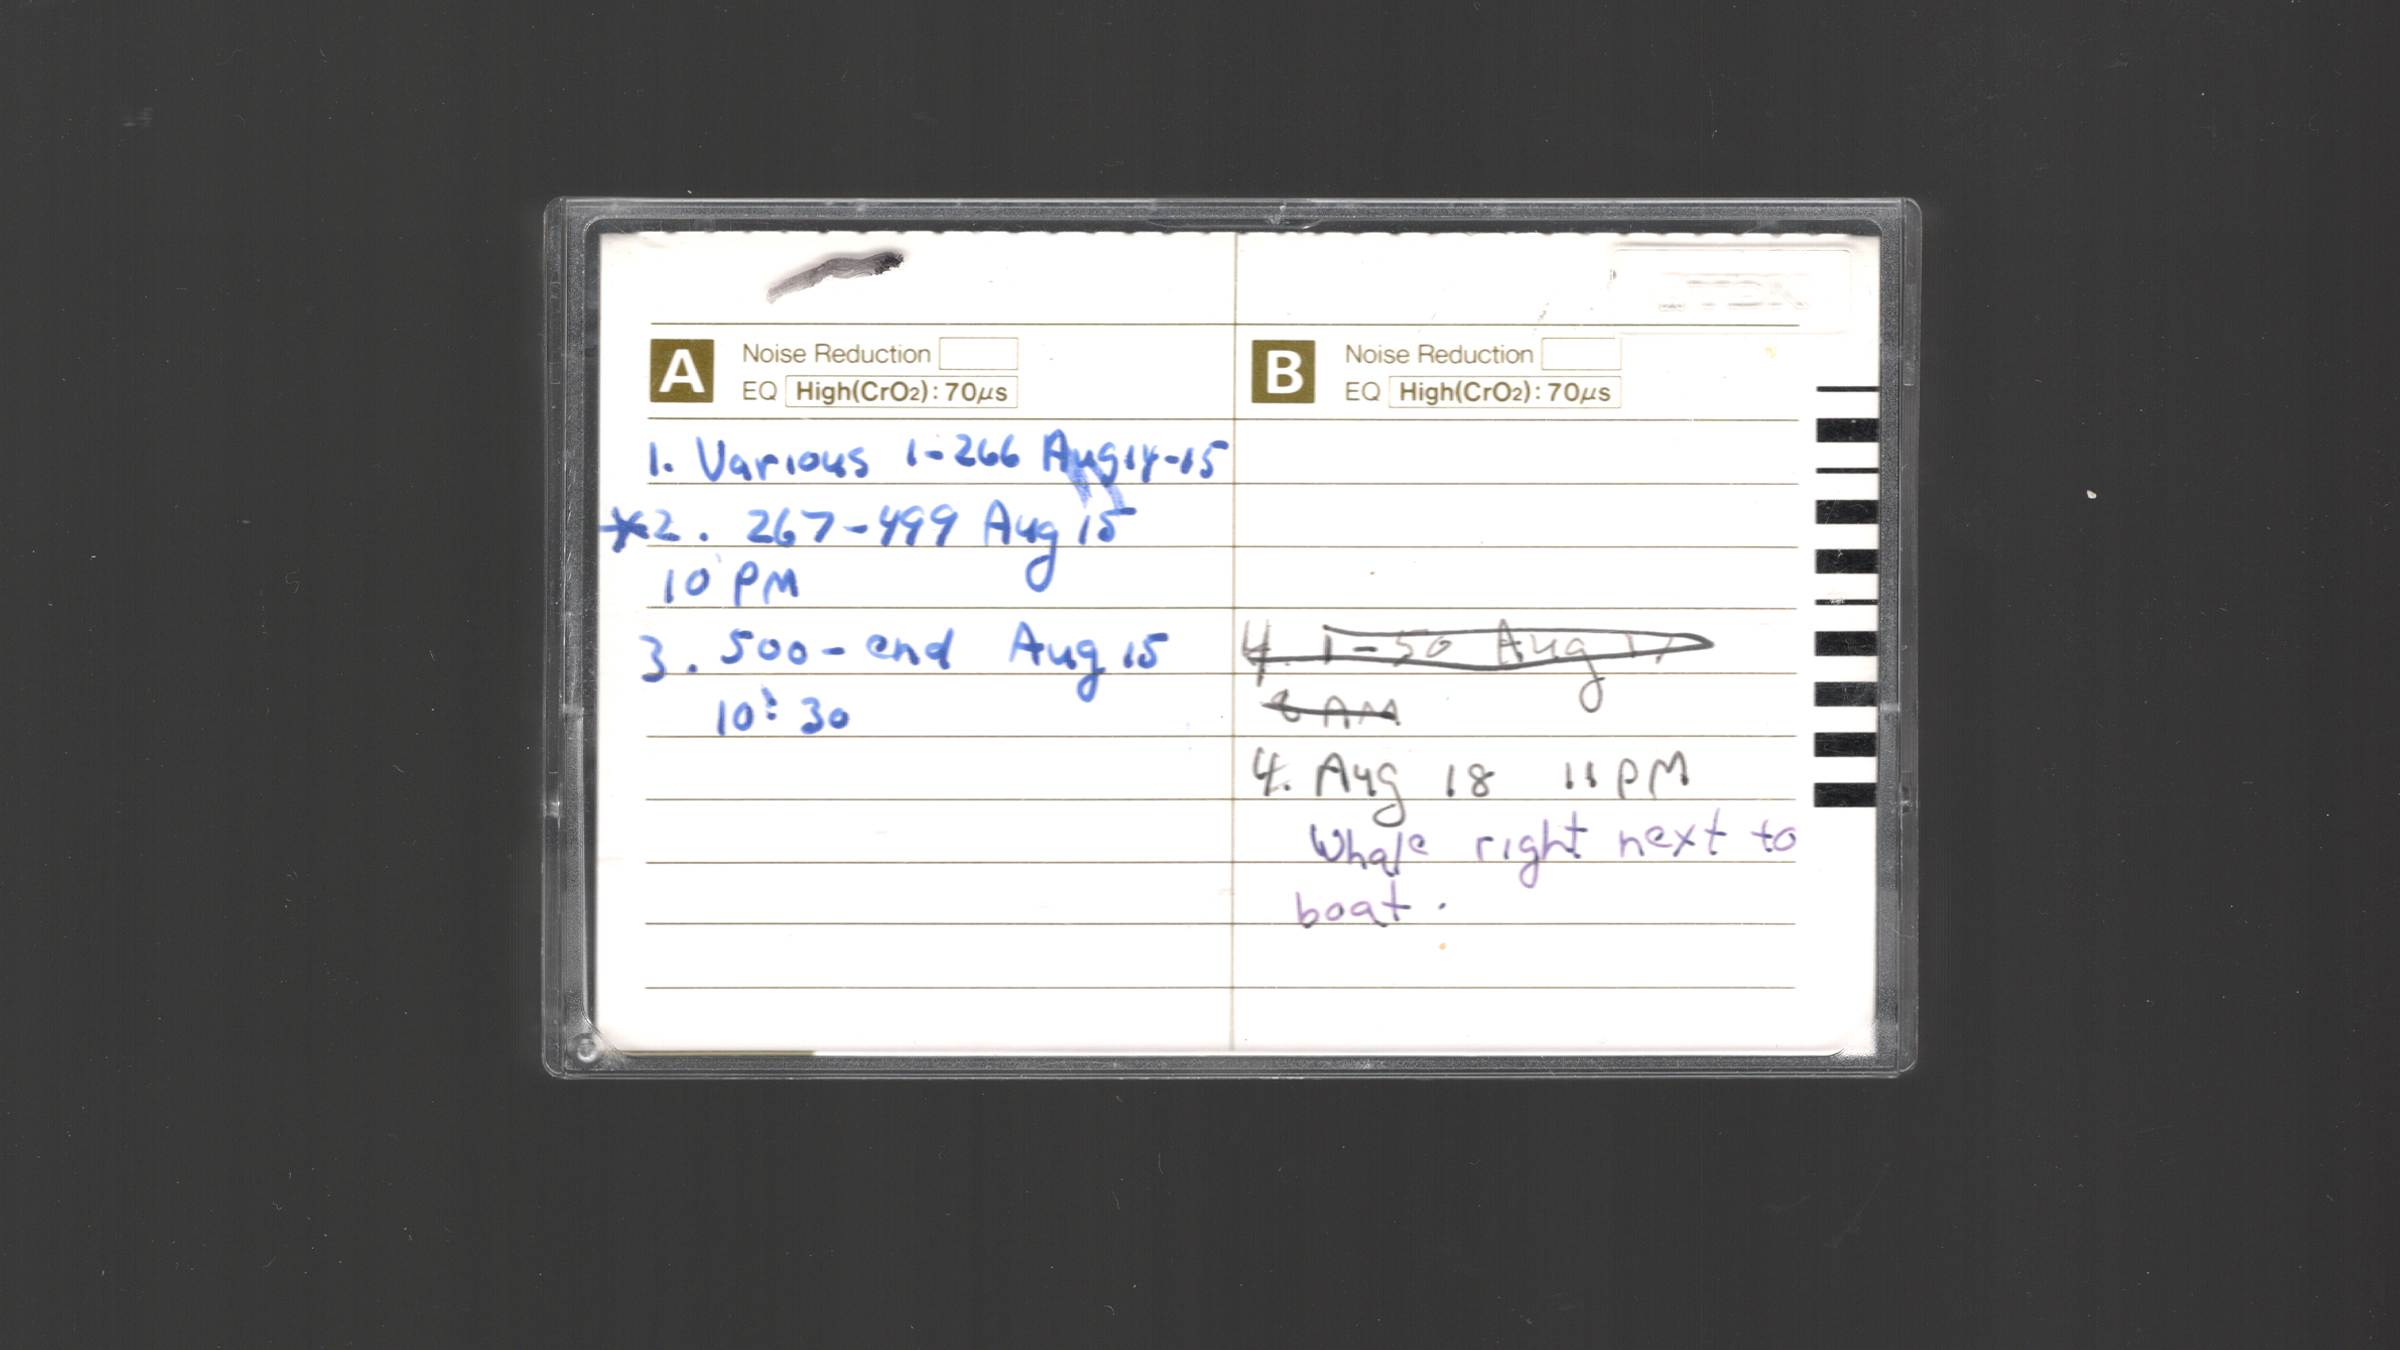 TDK
A Noise Reduction
EQ High(CrO2): 70μs
1. Various 1-266 Aug 14-15
*2. 267-499 Aug 15
10 PM
3. 500-end Aug 15
10:30
B Noise Reduction
EQ High(CrO2): 70μs
4. 1-50 Aug 17
8 AM
4. Aug 18 11 PM
Whale right next to
boat.